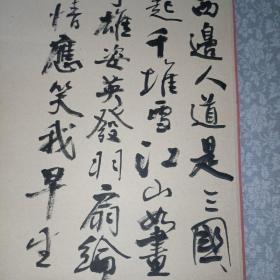 西邊人道是三國
起千堆雪江山如畫
雄姿英發羽扇綸
情應笑我早生